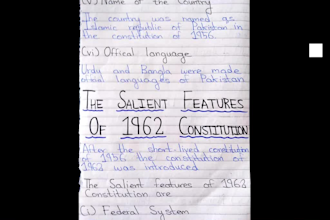 (v) Name of the Country
The country was named as
Islamic republic of Pakistan in
the constitution of 1956.
(vi) Offical language
Urdu and Bangla were made
offical languages of Pakistan
THE SALIENT FEATURES
OF 1962 CONSTITUTION
After the short lived constitution
of 1956 the constitution of
1962 was introduced
The Salient features of 1962
Constitution are
(i) Federal System